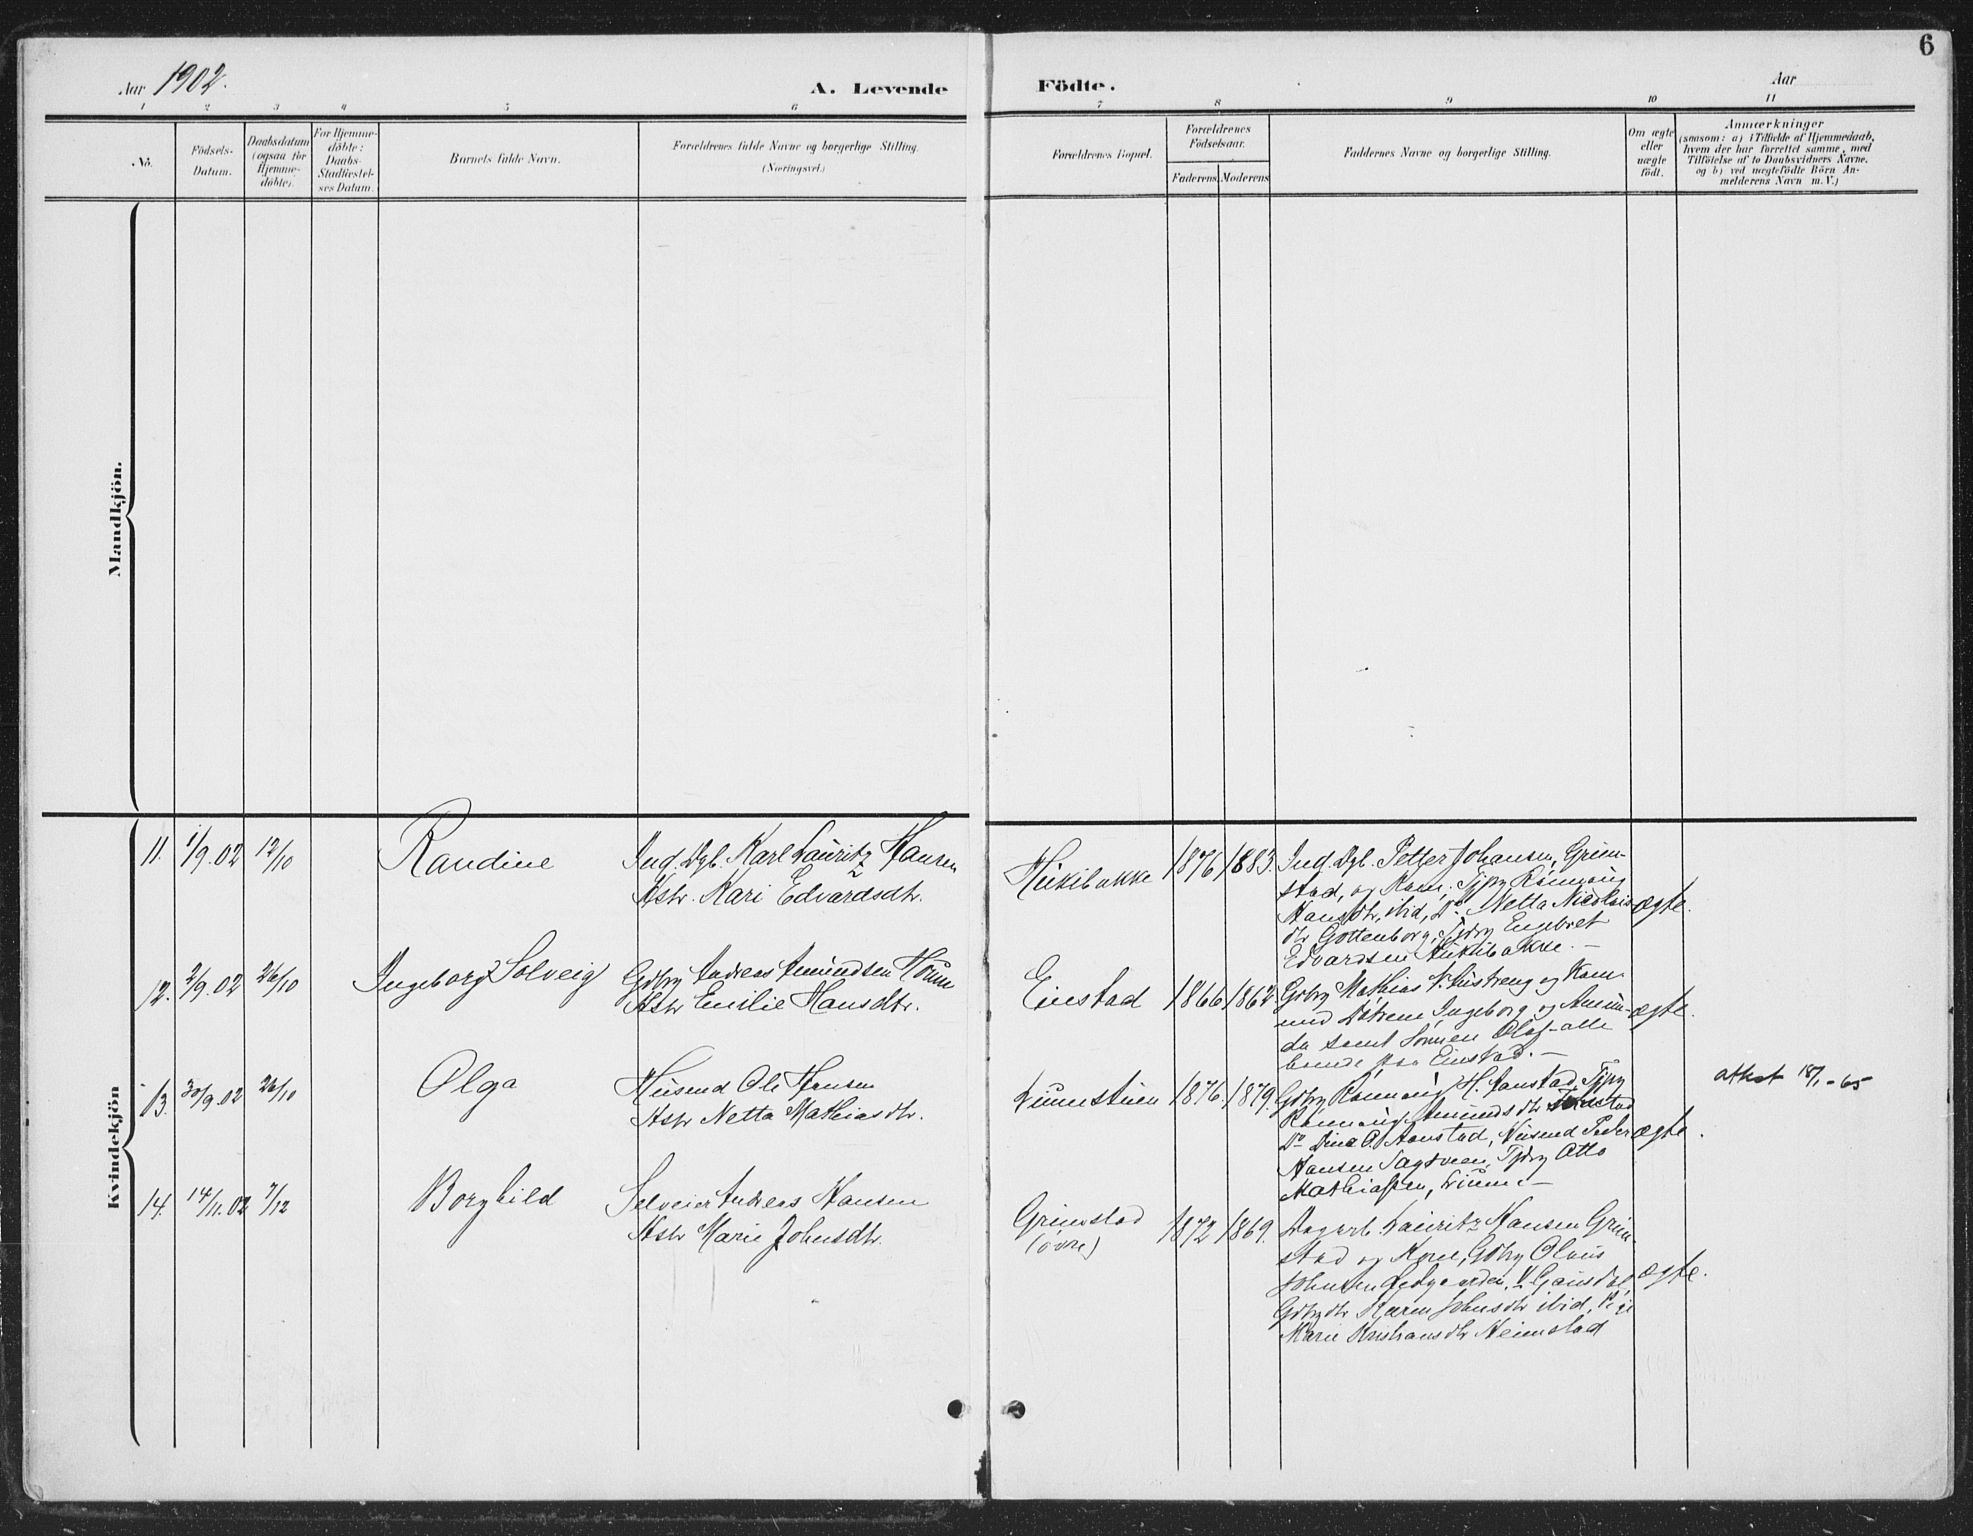 6
Aar 1902.
A. Levende Födte.
Aar
1 2 3 4 5 6 7 8 9 10 11
No.
Födsels-
Datum.
Daabsdatum
(ogsaa for
Hjemme-
døbte).
For Hjemme-
døbte:
Daabs-
Stadfæstel-
ses Datum.
Barnets fulde Navn.
Forældrenes fulde Navne og borgerlige Stilling.
(Næringsvei.)
Forældrenes Bopæl.
Forældrenes
Födselsaar.
Faderens. Moderens.
Faddernes Navne og borgerlige Stilling.
Om ægte
eller
uægte
födt.
Anmærkninger
(saasom: a) i Tilfælde af Hjemmedaab,
hvem der har forrettet samme, med
Tilföielse af to Daabsvidners Navne.
og b) ved uægtefödte Börn An-
melderens Navn m. V.)
Mandkjön.
Kvindekjön
11. 1/9.02 12/10 Randine
Ind. Dgl. Karl Lauritz Hansen
Hstr. Kari Edvardsdtr.
1876 1883.
Ind. Dgl. Petter Johansen, Grim-
stad, og Kone, Tjpg Rönnaug
Hansdtr, ibid, Do Netta Nicolais
dtr Gottenborg, Tjdrg Engebret
Edvardsen
ægte.
12. 2/9.02 26/10 Ingeborg Solveig
Gdbrg Andreas Amundsen
Hstr Emilie Hansdtr.
Einstad 1866 1862
Gdbrg Mathias og Kone
med Døtrene Ingeborg og Amun-
da samt Sönnen Olaf - alle
boende paa Einstad. —
ægte.
13. 30/9.02 26/10 Olga
Husmd Ole Hansen
Hstr Netta Mathiasdtr.
1876. 1879.
Gdbrg H. Aanstad, Tjpg
Rönnaug Amundsdtr
Do Dina O. Aanstad, Husmd Peder
Hansen Sagsveen, Tjdrg Otto
Mathiassen,
ægte.
attest 18/1-65
14. 14/11.02 7/12 Borghild
Selveier Andreas Hansen
Hstr Marie Johnsdtr.
Grimstad
(övre)
1872 1869.
Dagarb. Lauritz Hansen Grim-
stad og Kone, Gdbrg Olaus
Johnsen V. Gausdal,
Gdbrdtr Karen Johnsdtr ibid, Pige
Marie Kristiansdtr Heimstad
ægte.